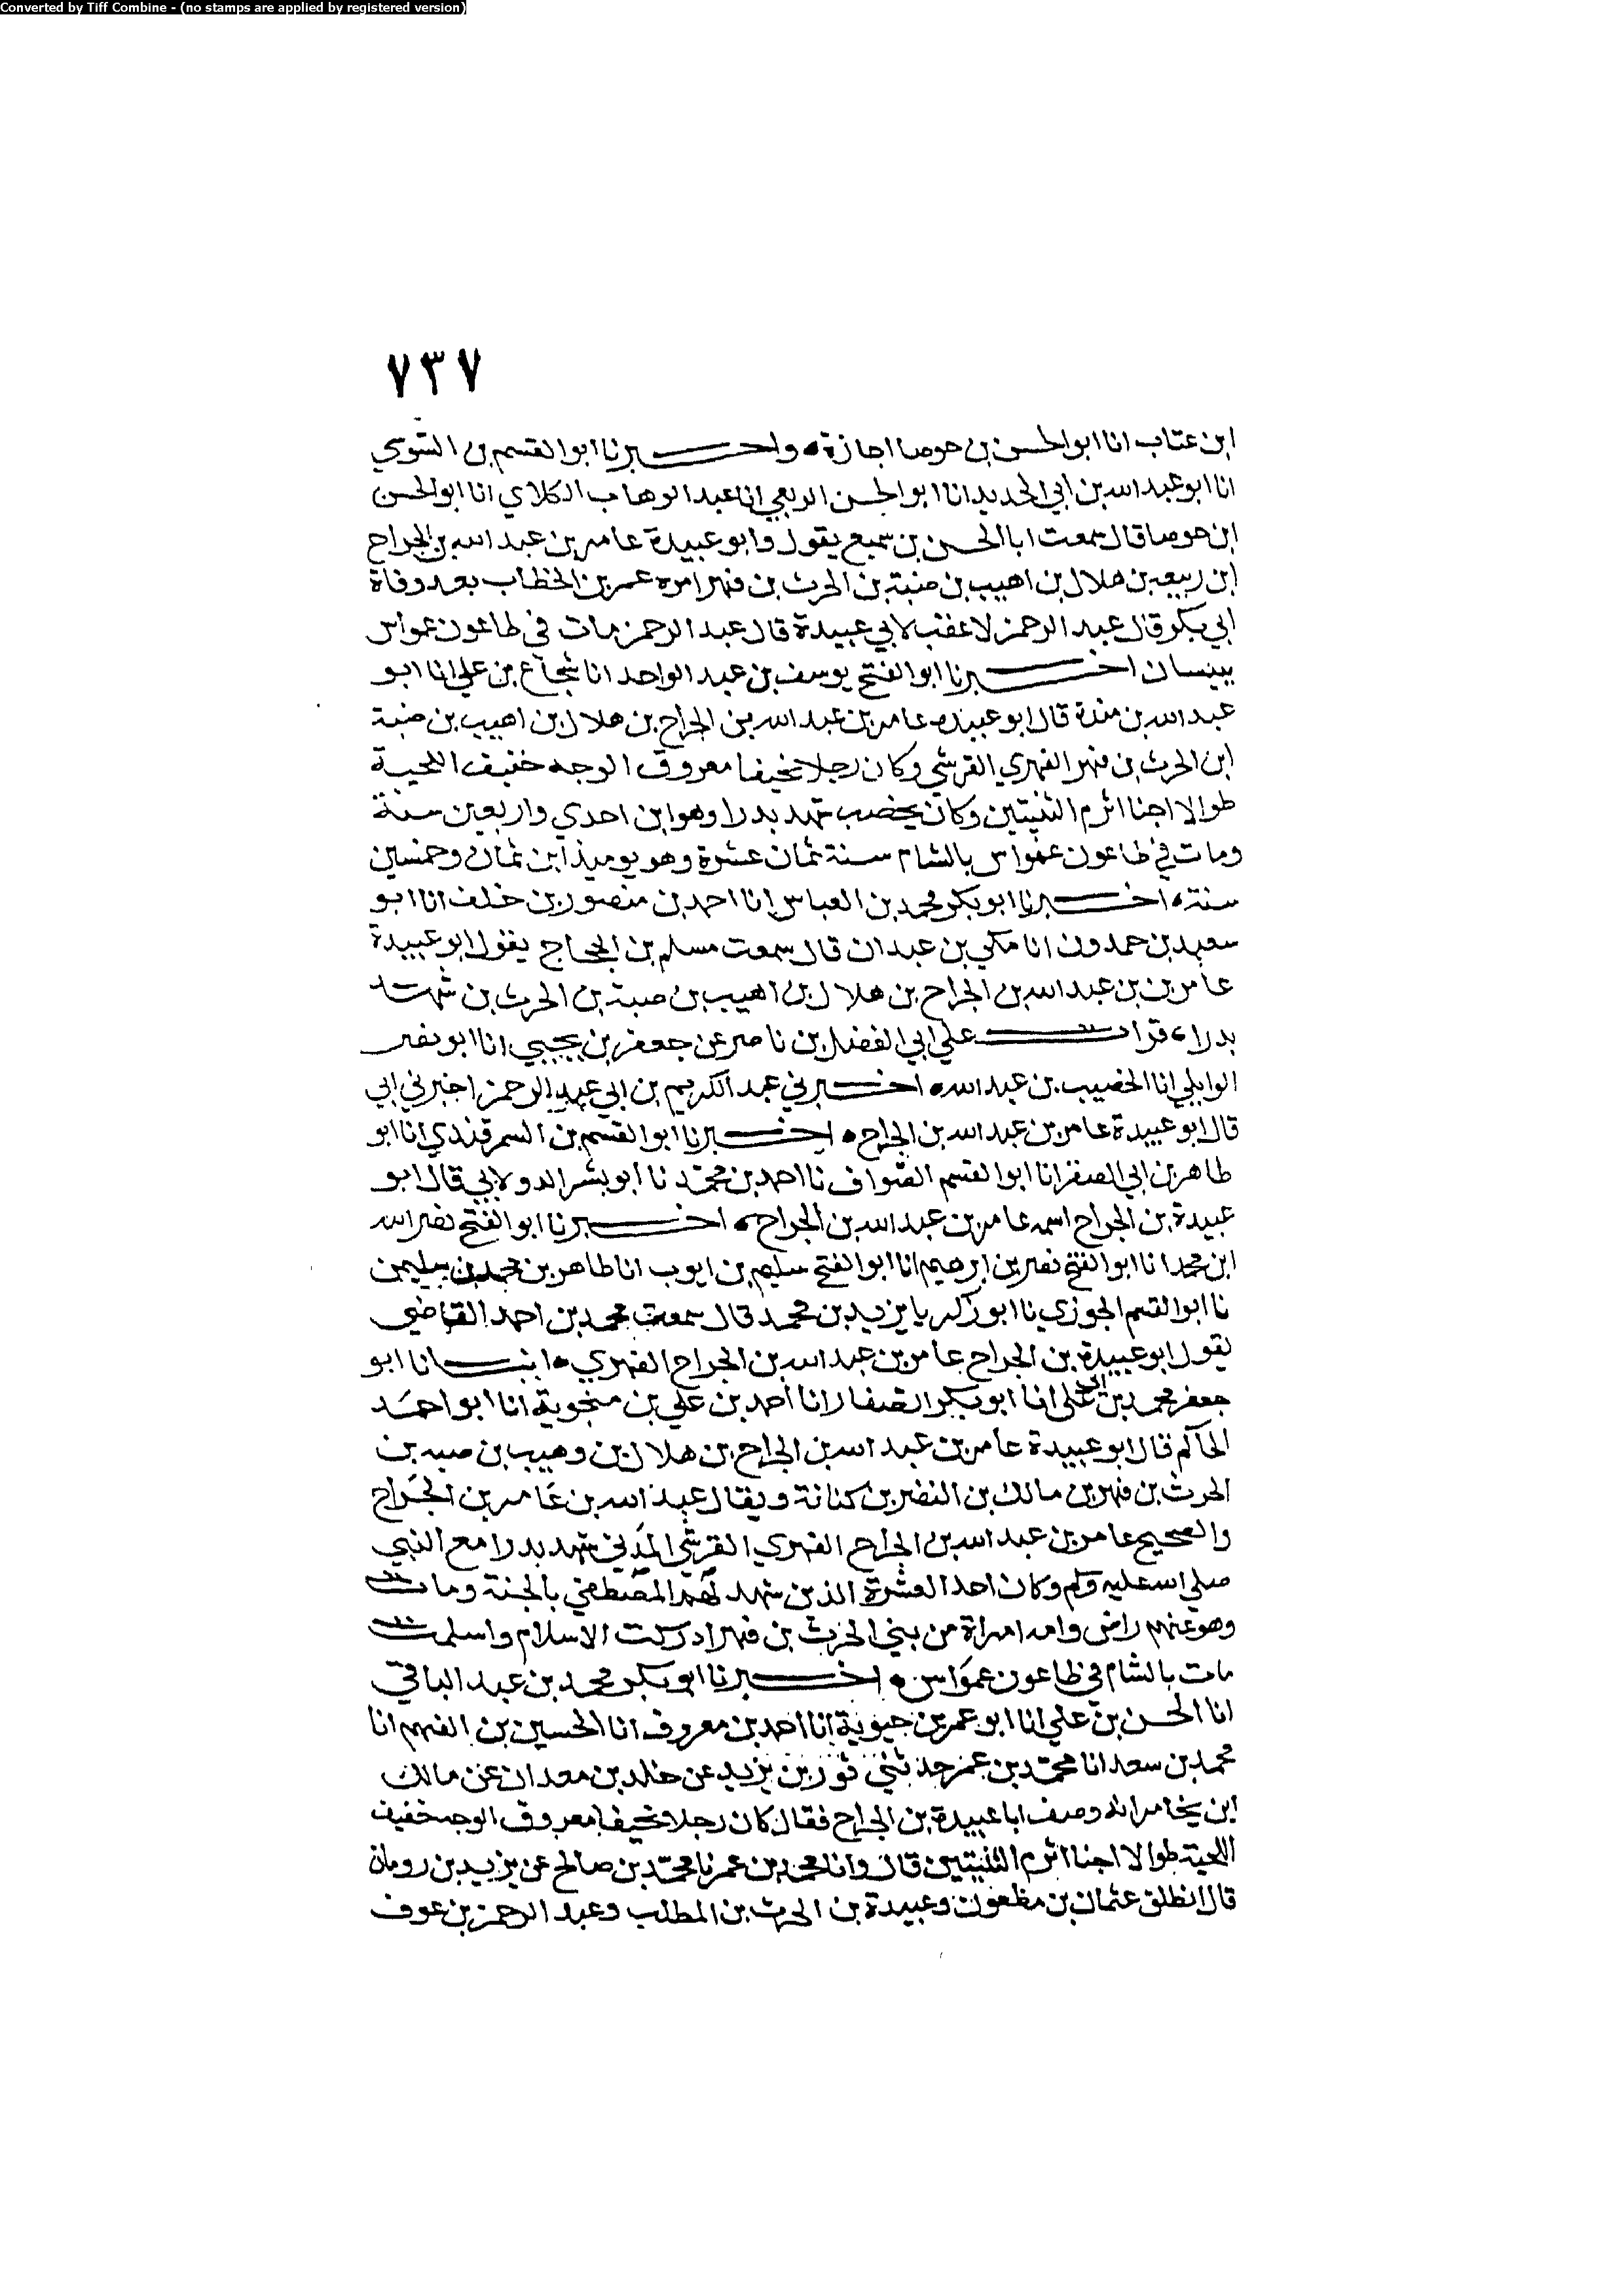 Converted by Tiff Combine - (no stamps are applied by registered version)
٧٣٧
ابن عتاب انا ابو الحسن بن حوصا اجازة • واخبرنا ابو القسم بن السوسي
انا ابو عبد الله بن ابي الحديد انا ابو الحسن الربعي انا عبد الوهاب الكلابي انا ابو الحسن
ابن حوصا قال سمعت ابا الحسن بن سميع يقول وابو عبيدة عامر بن عبد الله بن الجراح
ابن ربيعه بن هلال بن اهيب بن ضبة بن الحرث بن فهر امره عمر بن الخطاب بعد وفاة
ابي بكر قال عبد الرحمن لا عقب لابي عبيدة قال عبد الرحمن مات في طاعون عمواس
ببيسان اخبرنا ابو الفتح يوسف بن عبد الواحد انا شجاع بن علي انا ابو
عبد الله بن مندة قال ابو عبيده عامر بن عبد الله بن الجراح بن هلال بن اهيب بن ضبة
ابن الحرث بن فهر الفهري القرشي وكان رجلا نحيفا معروق الوجه خفيف اللحية
طوالا اجنا اثرم الثنيتين وكان يخضب شهد بدرا وهو ابن احدي واربعين سنة
ومات في طاعون عمواس بالشام سنة ثمان عشرة وهو يوميذ ابن ثمان وخمسين
سنة • اخبرنا ابو بكر محمد بن العباس انا احمد بن منصور بن خلف انا ابو
سعيد بن حمدون انا مكي بن عبدان قال سمعت مسلم بن الحجاج يقول ابو عبيدة
عامر بن بن عبد الله بن الجراح بن هلال بن اهيب بن ضبة بن الحرث بن شهد
بدرا • قرات علي ابي الفضل بن ناصر عن جعفر بن يحيي انا ابو نصر
الوايلي انا الخصيب بن عبد الله • اخبرني عبد الكريم بن ابي عبد الرحمن اخبرني ابي
قال ابو عبيدة عامر بن عبد الله بن الجراح • اخبرنا ابو القسم بن السمرقندي انا ابو
طاهر بن ابي الصقر انا ابو القسم الصواف نا احمد بن محمد نا ابو بشر الدولابي قال ابو
عبيدة بن الجراح اسمه عامر بن عبد الله بن الجراح • اخبرنا ابو الفتح نصر الله
ابن محمد انا ابو الفتح نصر بن ابرهيم انا ابو الفتح سليم بن ايوب انا طاهر بن محمد بن سليمن
نا ابو القسم الجوزي نا ابو زكريا يزيد بن محمد قال سمعت محمد بن احمد القاضي
يقول ابو عبيدة بن الجراح عامر بن عبد الله بن الجراح الفهري • انبانا ابو
جعفر محمد بن ابي علي انا ابو بكر الصفار انا احمد بن علي بن منجوية انا ابو احمد
الحاكم قال ابو عبيدة عامر بن عبد الله بن الجراح بن هلال بن وهيب بن ضبه بن
الحرث بن فهر بن مالك بن النضر بن كنانة ويقال عبد الله بن عامر بن الجراح
والصحيح عامر بن عبد الله بن الجراح الفهري القرشي المدني شهد بدرا مع النبي
صلي الله عليه وسلم وكان احد العشرة الذين شهد لهم المصطفي بالجنة ومات
وهو عنهم راض وامه امراة من بني الحرث بن فهر ادركت الاسلام واسلمت
مات بالشام في طاعون عمواس • اخبرنا ابو بكر محمد بن عبد الباقي
انا الحسن بن علي انا ابو عمر بن حيوية انا احمد بن معروف انا الحسين بن الفهم انا
محمد بن سعد انا محمد بن عمر حدثني ثور بن يزيد عن خالد بن معدان عن مالك
ابن يخامر انه وصف ابا عبيدة بن الجراح فقال كان رجلا نحيفا معروق الوجه خفيف
اللحية طوالا اجنا اثرم الثنيتين قال وانا محمد بن عمر نا محمد بن صالح عن يزيد بن رومان
قال انطلق عثمان بن مظعون وعبيدة بن الحرث بن المطلب وعبد الرحمن بن عوف